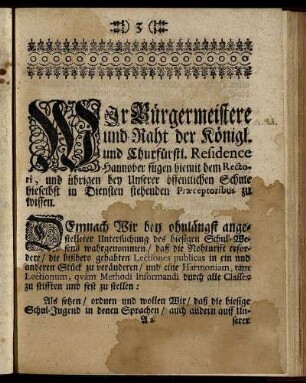 3
Wir Bürgermeistere
und Raht der Königl.
und Churfürstl. Residence
Hannover fügen hiemit dem Recto-
ri, und übrigen bey Unserer öffentlichen Schule
hieselbst in Diensten stehenden Præceptoribus zu
wissen.
Demnach Wir bey ohnlängst ange-
stelleter Untersuchung des hiesigen Schul-We-
sens wahrgenommen / daß die Nohturfft erfor-
dere / die bißhero gehabten Lectiones publicas in ein und
anderen Stück zu verändern / und eine Harmoniam, tam
Lectionum, qvam Methodi Informandi durch alle Classes
zu stifften und fest zu stellen:
Als setzen / ordnen und wollen Wir / daß die hiesige
Schul-Jugend in denen Sprachen / auch andern auff Un-
serer